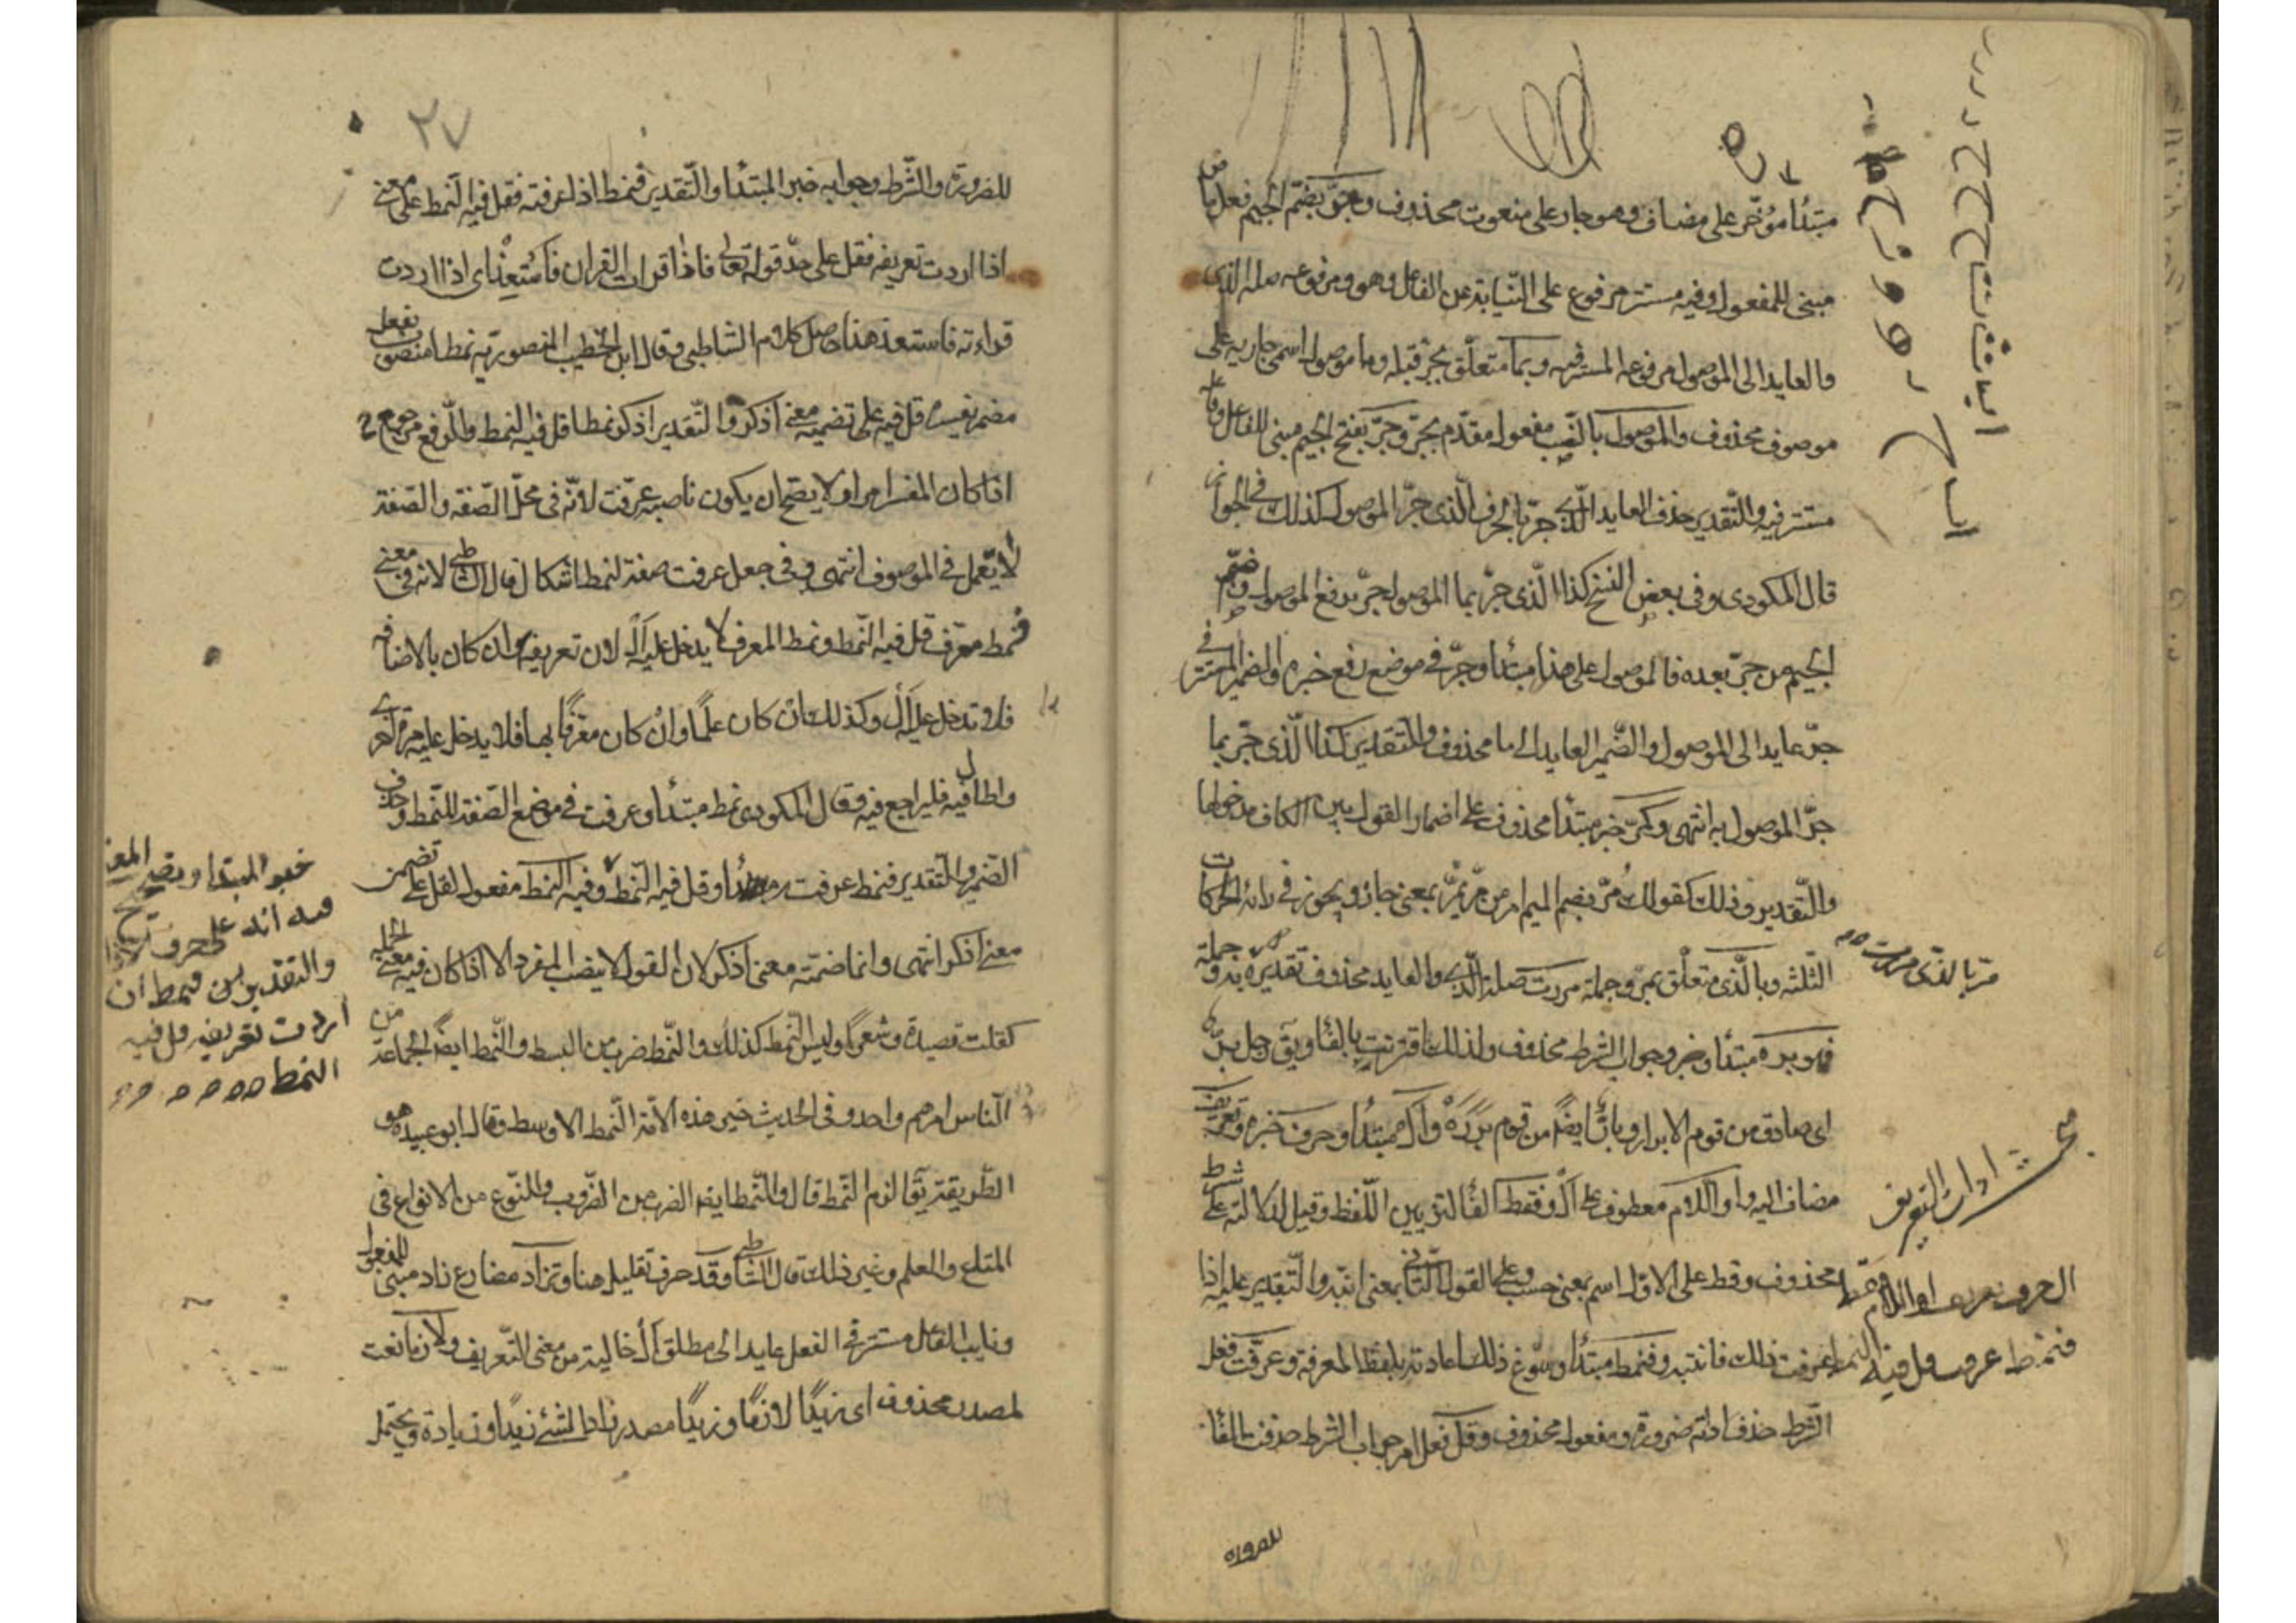 مبتدأ مؤخر على مضاف وهو جار على منعوت محذوف وجر بضم الجيم فعل ماض
مبنى للمفعول وفيه مستتر مرفوع على النيابة عن الفاعل وهو ومرفوعه صلة الذى
والعايد الى الموصول مرفوعه المستتر فيه وبما متعلق بجر قبله وما موصول اسمى جاريه على
موصوف محذوف والموصول بالنصب مفعول مقدم بجر وجر بفتح الجيم مبنى للفاعل وفاعله
مستتر فيه والتقدير حذف العايد الذى جر بالحرف الذى جر الموصول كذلك فى الجواز
قال المكودى وفى بعض النسخ كذا الذى جر بما الموصول جر برفع الموصول وضم
الجيم من جر بعده فالموصول على هذا مبتدأ وجر فى موضع رفع خبره والضمير المستتر فى
جر عايد الى الموصول والضمير العايد الى ما محذوف والتقدير كذا الذى جر بما
جر الموصول به انتهى وكمر خبر مبتدأ محذوف على اضمار القول بين الكاف ومدخولها
والتقدير وذلك كقولك مر بضم الميم امر من مر يمر بمعنى جاز ويجوز فى رائه الحركات
الثلثه وبالذى متعلق بمر وجملة مررت صلة الذى والعايد محذوف تقديره به وجملة
مر بالذى مررت
فهو بر مبتدأ وخبر وجواب الشرط محذوف ولذلك اقترنت بالفا ويق رجل بر
اى صادق من قوم الابرار وبار ايضا من قوم بررة وأل مبتدأ وحرف خبره وتعريف
مضاف اليه واو اللام معطوف على أل وفقط الفا لتزيين اللفظ وقيل لدلالته على شرط
محذوف وقط على الاول اسم بمعنى حسب وعلى القول الثانى بمعنى انته والتقدير عليه اذا
عرفت ذلك فانته وفنمط مبتدأ وسوغ ذلك اعادته بلفظ المعرفة وعرفت فعل
الشرط حذف اداته ضرورة ومفعوله محذوف وقل فعل امر جواب الشرط حذفت الفا
للضرورة
ال حرف تعريف او اللام فقط
فنمط عرفت قل فيه النمط
اداة التعريف
ا ب ت ث ج ح
٢٧
للضرورة والشرط وجوابه خبر المبتدا والتقدير فنمط اذا عرفته فقل فيه النمط على معنى
اذا اردت تعريفه فقل على حد قوله تعالى فاذا قرات القران فاستعذ اى اذا اردت
قراءته فاستعذ هذا حاصل كلام الشاطبى وقال ابن الخطيب المنصورية نمطا منصوب بفعل
مضمر يفسره قل فيه على تضمينه معنى اذكر والتقدير اذكر نمطا قل فيه النمط والرفع مرجوح
اذا كان المفسر امرا ولا يصح ان يكون ناصبه عرفت لانه فى محل الصفة والصفة
لا تعمل فى الموصوف انتهى وفى جعل عرفت صفة لنمط اشكال قال الشاطبى لانه فى معنى
فنمط معرف قل فيه النمط ونمط المعرف لا يدخل عليه أل لان تعريفه ان كان بالاضافه
فلا تدخل عليه أل وكذلك ان كان علما وان كان معرفا بها فلا يدخل عليه مرة اخرى
واطال فيه فليراجع فيه وقال المكودى نمط مبتدأ وعرفت فى موضع الصفة للنمط وحذف
الضمير والتقدير فنمط عرفته مبتدأ وقل فيه النمط وفيه النمط مفعول لقل على تضمن
معنى اذكر انتهى وانما ضمنته معنى اذكر لان القول لا ينصب المفرد الا اذا كان فيه معنى الجملة
كقلت قصيدة وشعرا وليس النمط كذلك والنمط ضرب من البسط والنمط ايضا الجماعة من
الناس امرهم واحد وفى الحديث خير هذه الامة النمط الاوسط وقال ابو عبيده هو
الطريقة يقال الزم النمط قال والنمط ايضا الضرب من الضروب والنوع من الانواع فى
المتاع والعلم وغير ذلك قال الشاطبى وقد حرف تقليل هنا وتزاد مضارع زاد مبنى للمفعول
ونايب الفاعل مستتر فى الفعل عايد الى مطلق أل خالية من معنى التعريف ولازما نعت
لمصدر محذوف اى زيدا لازما وزيدا مصدر زاد الشئ زيدا وزيادة ويحتمل
خبر المبتدا
والتقدير فنمط ان
اردت تعريفه قل فيه
النمط